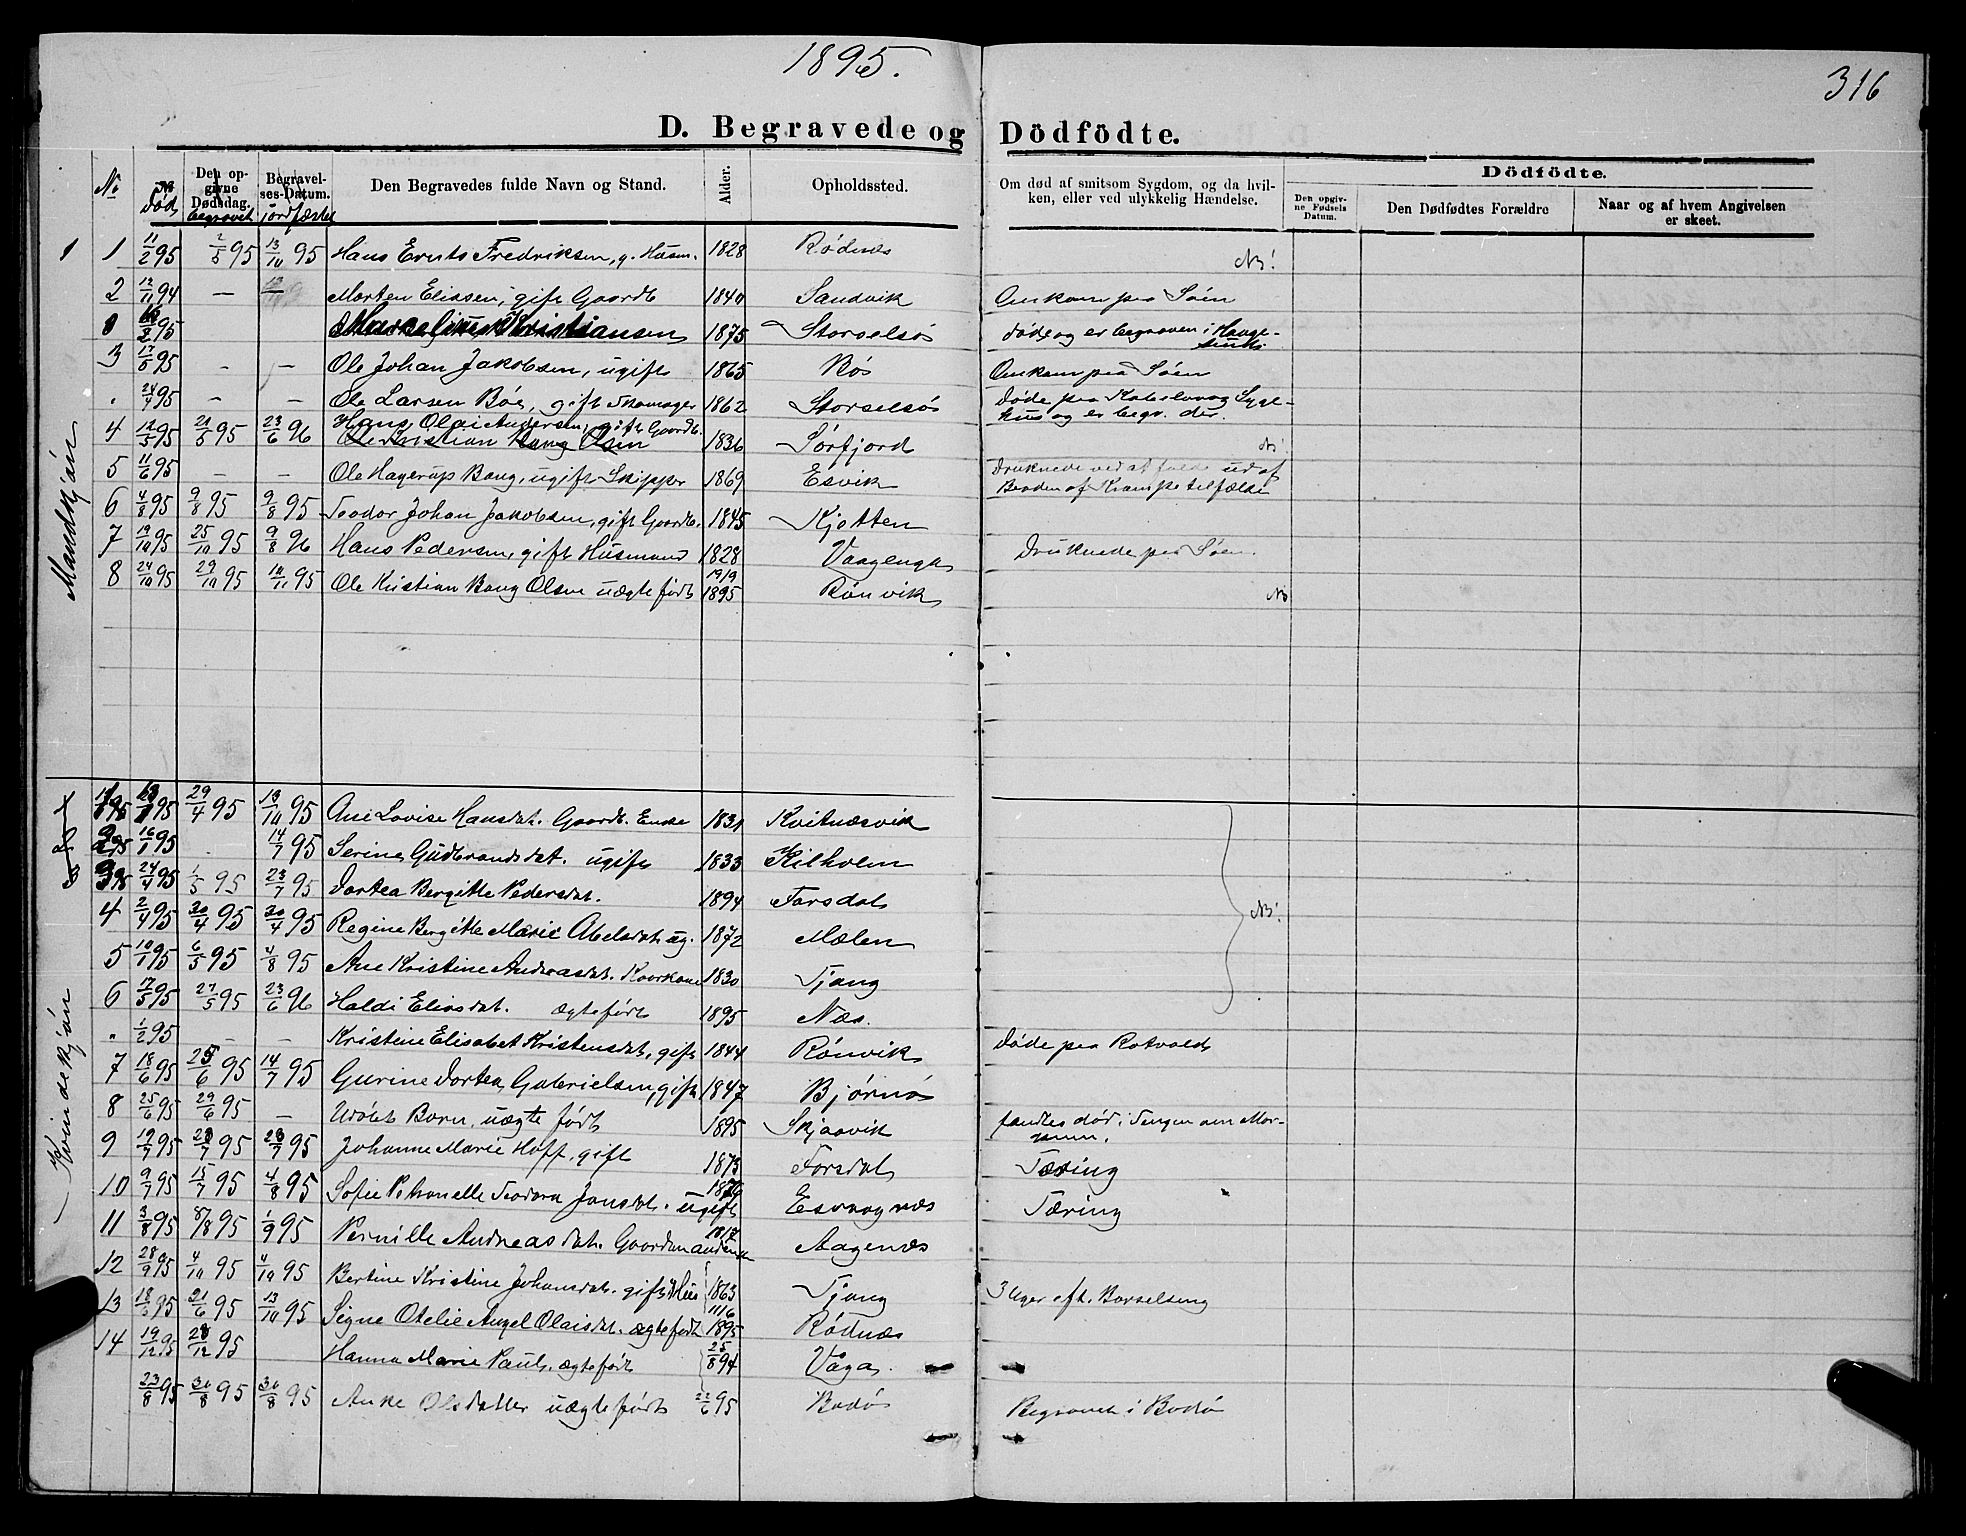 1895.
316
D. Begravede og Dödfödte.
No
Död
Den opgivne Dødsdag. begravet
Begravelses-Datum. jordfæstet
Den Begravedes fulde Navn og Stand.
Alder.
Opholdssted.
Om død af smitsom Sygdom, og da hvilken, eller ved ulykkelig Hændelse.
Dödfödte.
Den opgivne Fødsels Datum.
Den Dødfødtes Forældre
Naar og af hvem Angivelsen er skeet.
Mandkjøn
1 11/2 95 2/5 95 13/10 95 Hans Ernts Fredriksen, g. Husm. 1828 Rødnæs NB!
2 12/11 94 — Morten Eliasen, gift Gaardb. 1840 Sandvik Omkom paa Søen
95 Markelius Kristiansen 1875 Storselsø døde og er begraven i Haugesund
3 17/5 95 - — Ole Johan Jakobsen, ugift 1865 Bø Omkom paa Søen
" 24/4 95 — — Ole Larsen Bøe, gift 1862 Storselsø Døde paa Sygehus og er begr. der.
4 12/5 95 21/5 95 23/6 96 Hans Olai Andersen, gift Gaardb. 1836 Sørfjord NB!
Ole Kristian Bang Olsen
5 11/6 95 — — Ole Hagerup Bang, ugift Skipper 1869 Esvik Druknede ved at falde ud af Baaden af Krampetilfælde
6 4/8 95 9/8 95 9/8 95 Teodor Johan Jakobsen, gift Gaardb. 1845 Kjotten
7 19/10 95 25/10 95 9/8 96 Hans Pedersen, gift Husmand 1828 Vaagenga Druknede paa Søen.
8 24/10 95 29/10 95 10/11 95 Ole Kristian Bang Olsen uægte født 19/9 1895 Rønvik NB
Kvindekjøn
1 95 29/4 95 13/10 95 Ane Lovise Hansdat. Gaardb. Enke 1831 Kvitnæsvik
2 16/1 95 14/7 95 Serine Gudbrandsdat. ugift 1833 Kilholm
3 24/4 95 1/5 95 23/7 95 Dortea Bergitte Pedersdat. 1894 Forsdal
4 2/4 95 20/4 95 20/4 95 Regine Bergitte Marie Abelsdat. ug. 1872 Mælen NB!
5 10/1 95 6/5 95 4/8 95 Ane Kristine Andreasdat. Kaarkone 1830 Tjong
6 17/5 95 27/5 95 23/6 96 Haldi Eliasdat. ægte født 1895 Næs.
" 1/2 95 — — Kristine Elisabet Kristensdat, gift 1844 Rønvik Døde paa Rotvold
7 18/6 95 25/6 95 14/7 95 Gurine Dortea Gabrielsen, gift 1847 Bjørnø
8 25/6 95 29/6 95 — Udøbt Barn, uægte født 1895 Skjaavik fandtes død i Sengen om Morgenen.
9 19/7 95 28/7 95 28/7 95 Johanne Marie Hoff, gift 1873 Forsdal Tæring
10 9/7 95 15/7 95 4/8 95 Sofie Petronelle Teodora Jonsdat. ugift 1876 Esvaagnæs Tæring
11 3/8 95 8/8 95 1/9 95 Pernille Andreasdat. Gaardmandsenke 1817 Aagenæs
12 28/9 95 4/10 95 4/10 95 Bertine Kristine Johansdat. gift Hus 1863 Tjong 3 Uger eft. Barselseng
13 95 21/6 95 13/10 95 Signe Otelie Angel Olaisdat. ægte født 11/6 1895 Rødnæs
14 19/12 95 28/12 95 Hanna Marie Paul. ægte født 25/8 94 Våga.
23/8 95 30/8 95 30/8 95 Anke Olsdatter uægte født 22/6 95 Bodø Begravet i Bodø